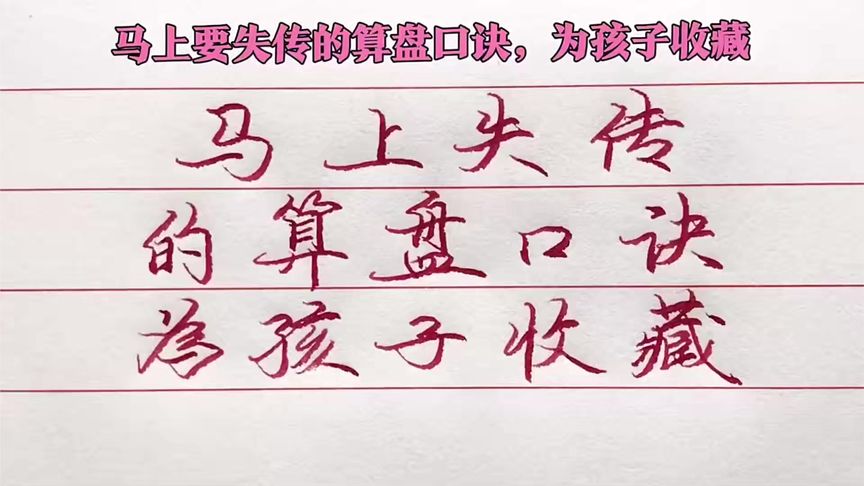 马上要失传的算盘口诀，为孩子收藏
马上失传
的算盘口诀
為孩子收藏